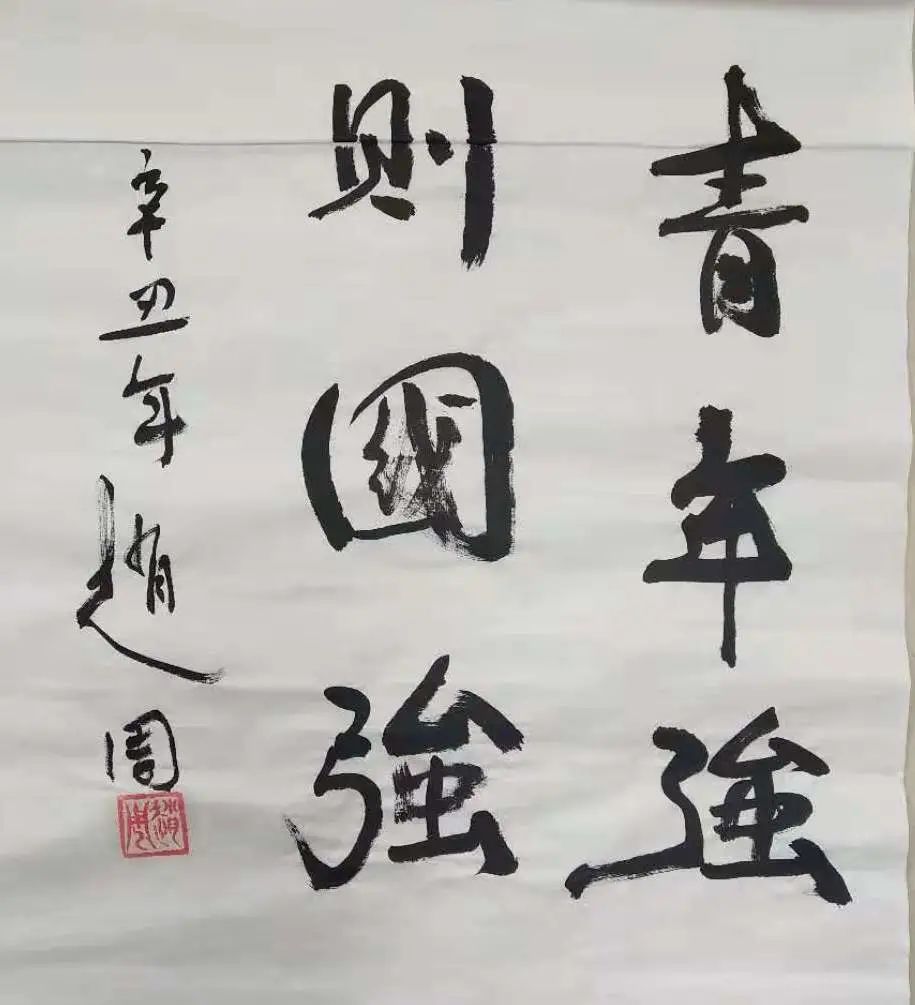 青年強
則國強
辛丑年趙周